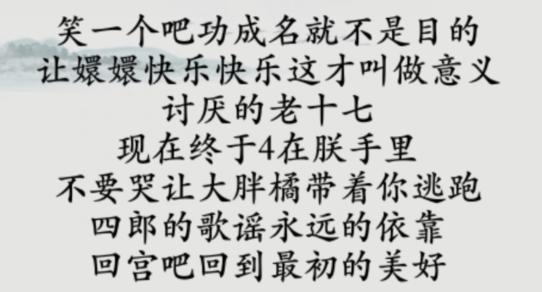 笑一个吧功成名就不是目的
让嬛嬛快乐快乐这才叫做意义
讨厌的老十七
现在终于4在朕手里
不要哭让大胖橘带着你逃跑
四郎的歌谣永远的依靠
回宫吧回到最初的美好